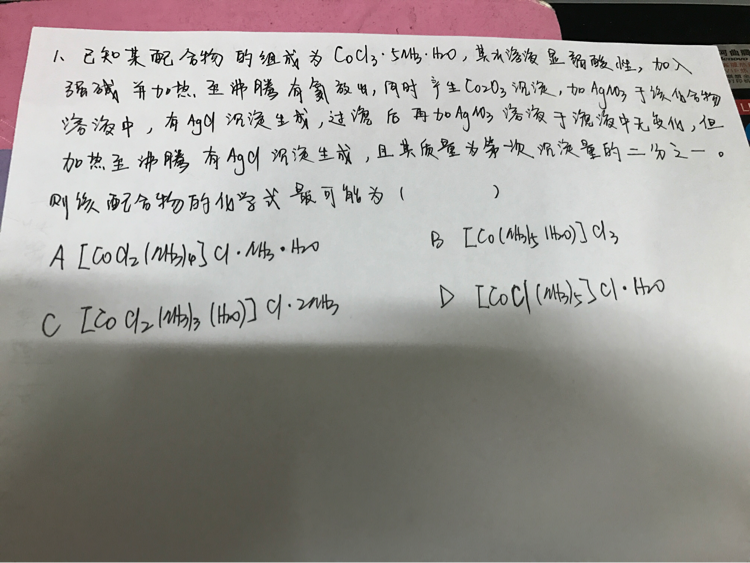 1、已知某配合物的组成为CoCl3·5NH3·H2O,其水溶液显弱酸性,加入
强碱并加热至沸腾有氨放出,同时产生Co2O3沉淀,加AgNO3于该化合物
溶液中,有AgCl沉淀生成,过滤后再加AgNO3溶液于滤液中无变化,但
加热至沸腾有AgCl沉淀生成,且其质量为第一次沉淀量的二分之一。
则该配合物的化学式最可能为( )
A [CoCl2(NH3)4]Cl·NH3·H2O
B [Co(NH3)5(H2O)]Cl3
C [CoCl2(NH3)3(H2O)]Cl·2NH3
D [CoCl(NH3)5]Cl·H2O